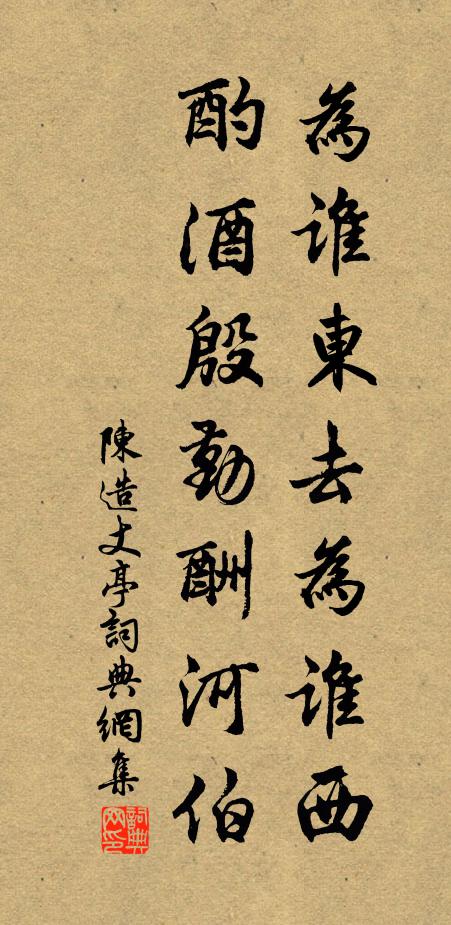 為誰東去為誰西
酌酒殷勤酬河伯
陳造丈亭詞典網集
詞典网印